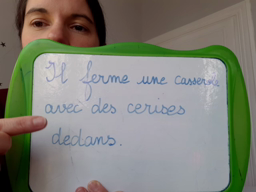 Il ferme une casserole
avec des cerises
dedans.